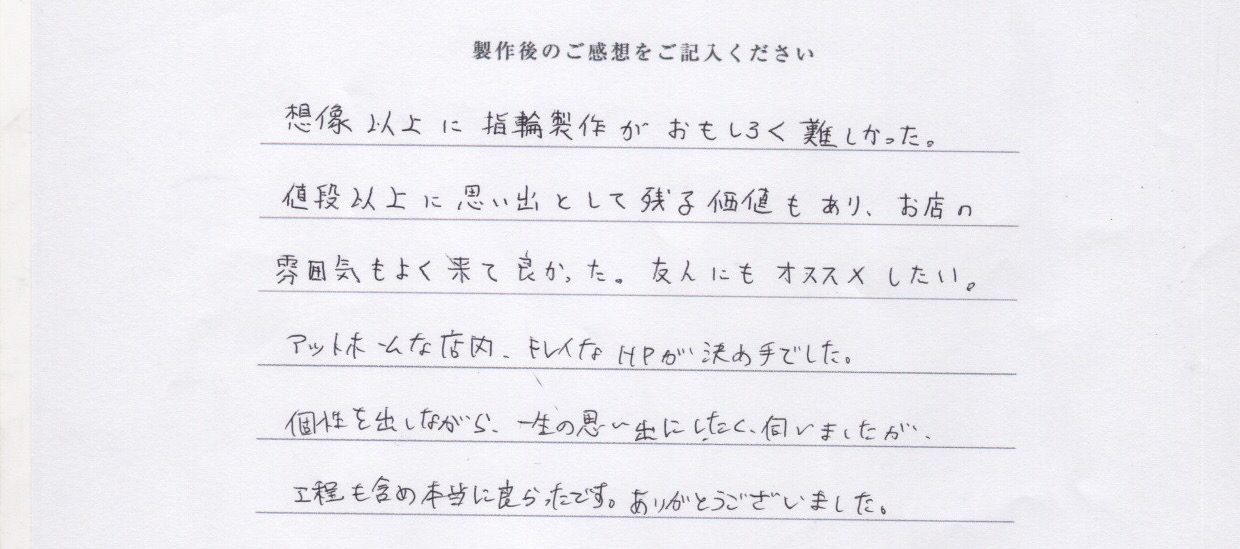 製作後のご感想をご記入ください
想像以上に指輪製作がおもしろく難しかった。
値段以上に思い出として残る価値もあり、お店の
雰囲気もよく来て良かった。友人にもオススメしたい。
アットホームな店内、キレイなHPが決め手でした。
個性を出しながら、一生の思い出にしたく、伺いましたが、
工程も含め本当に良らったです。ありがとうございました。